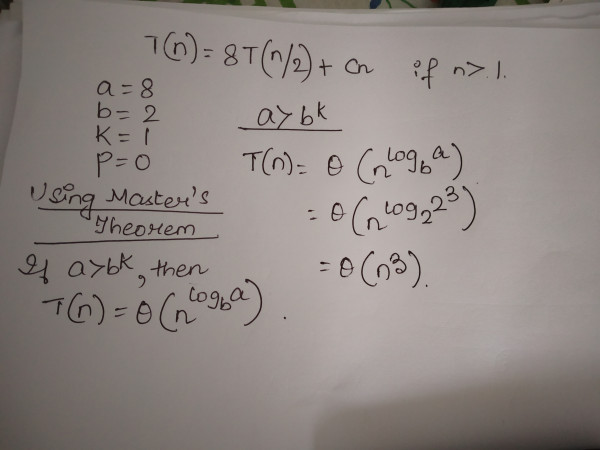 T(n) = 8T(n/2) + Cn if n>.1.
a = 8
b = 2
K = 1
P = 0
a > b^k
T(n) = θ (n^log_b a)
= θ (n^log_2 2^3)
= θ (n^3).
Using Master's
Theorem
If a > b^k, then
T(n) = θ (n^log_b a) .